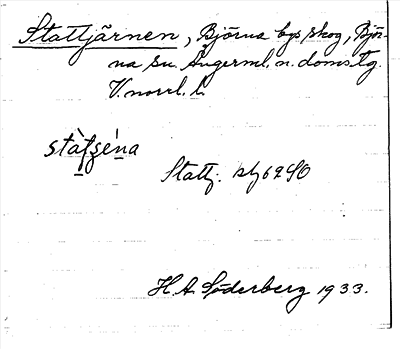 Stattjärnen, Björna bys skog, Björ-
na sn. Ångerml. n. doms. tg.
V.norrl. l.
Stattj.
H. A. Söderberg 1933.